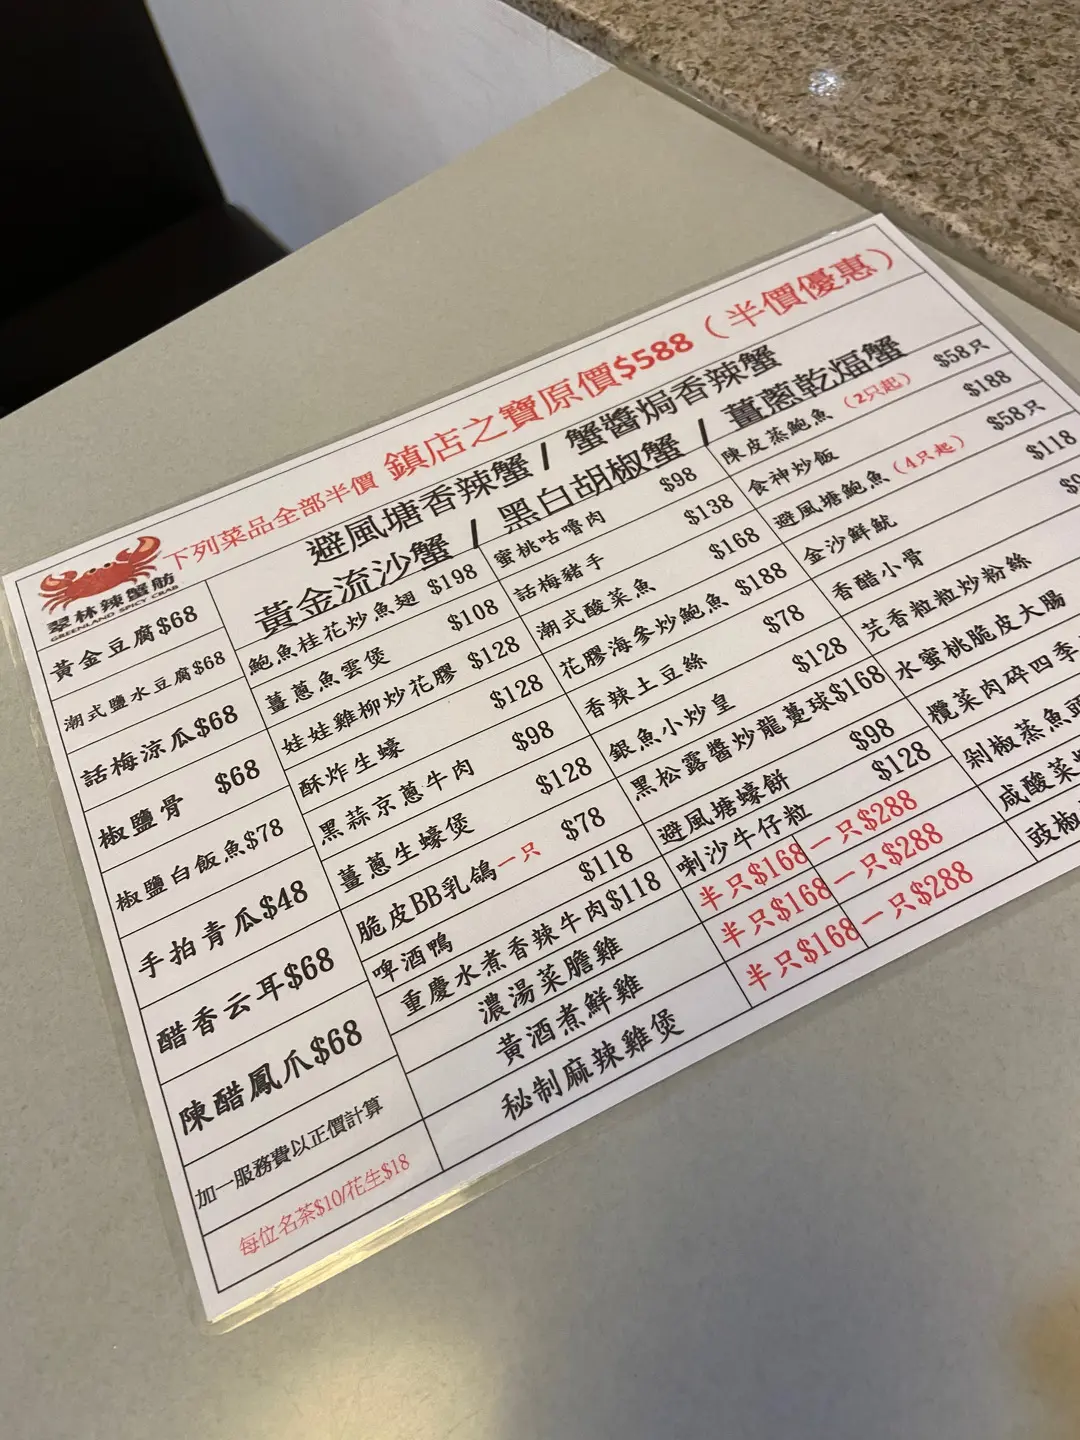 下列菜品全部半價 鎮店之寶原價$588（半價優惠）
避風塘香辣蟹 / 蟹醬焗香辣蟹
黃金流沙蟹 / 黑白胡椒蟹 / 薑蔥乾煏蟹
翠林辣蟹舫
GREENLAND SPICY CRAB
黃金豆腐$68
潮式鹽水豆腐$68
話梅涼瓜$68
椒鹽骨 $68
椒鹽白飯魚$78
手拍青瓜$48
醋香云耳$68
陳醋鳳爪$68
加一服務費以正價計算
每位名茶$10/花生$18
鮑魚桂花炒魚翅 $198
薑蔥魚雲煲 $108
娃娃雞柳炒花膠 $128
酥炸生蠔 $128
黑蒜京蔥牛肉 $98
薑蔥生蠔煲 $128
脆皮BB乳鴿一只 $78
啤酒鴨 $118
重慶水煮香辣牛肉$118
濃湯菜膽雞 半只$168 一只$288
黃酒煮鮮雞 半只$168 一只$288
秘制麻辣雞煲 半只$168 一只$288
蜜桃咕嚕肉 $98
話梅豬手 $138
潮式酸菜魚 $168
花膠海參炒鮑魚 $188
香辣土豆絲 $78
銀魚小炒皇 $128
黑松露醬炒龍躉球$168
避風塘蠔餅 $98
喇沙牛仔粒 $128
陳皮蒸鮑魚（2只起） $58只
食神炒飯 $188
避風塘鮑魚（4只起） $58只
金沙鮮魷 $118
香醋小骨
芫香粒粒炒粉絲
水蜜桃脆皮大腸
欖菜肉碎四季
剁椒蒸魚
咸酸菜
豉椒